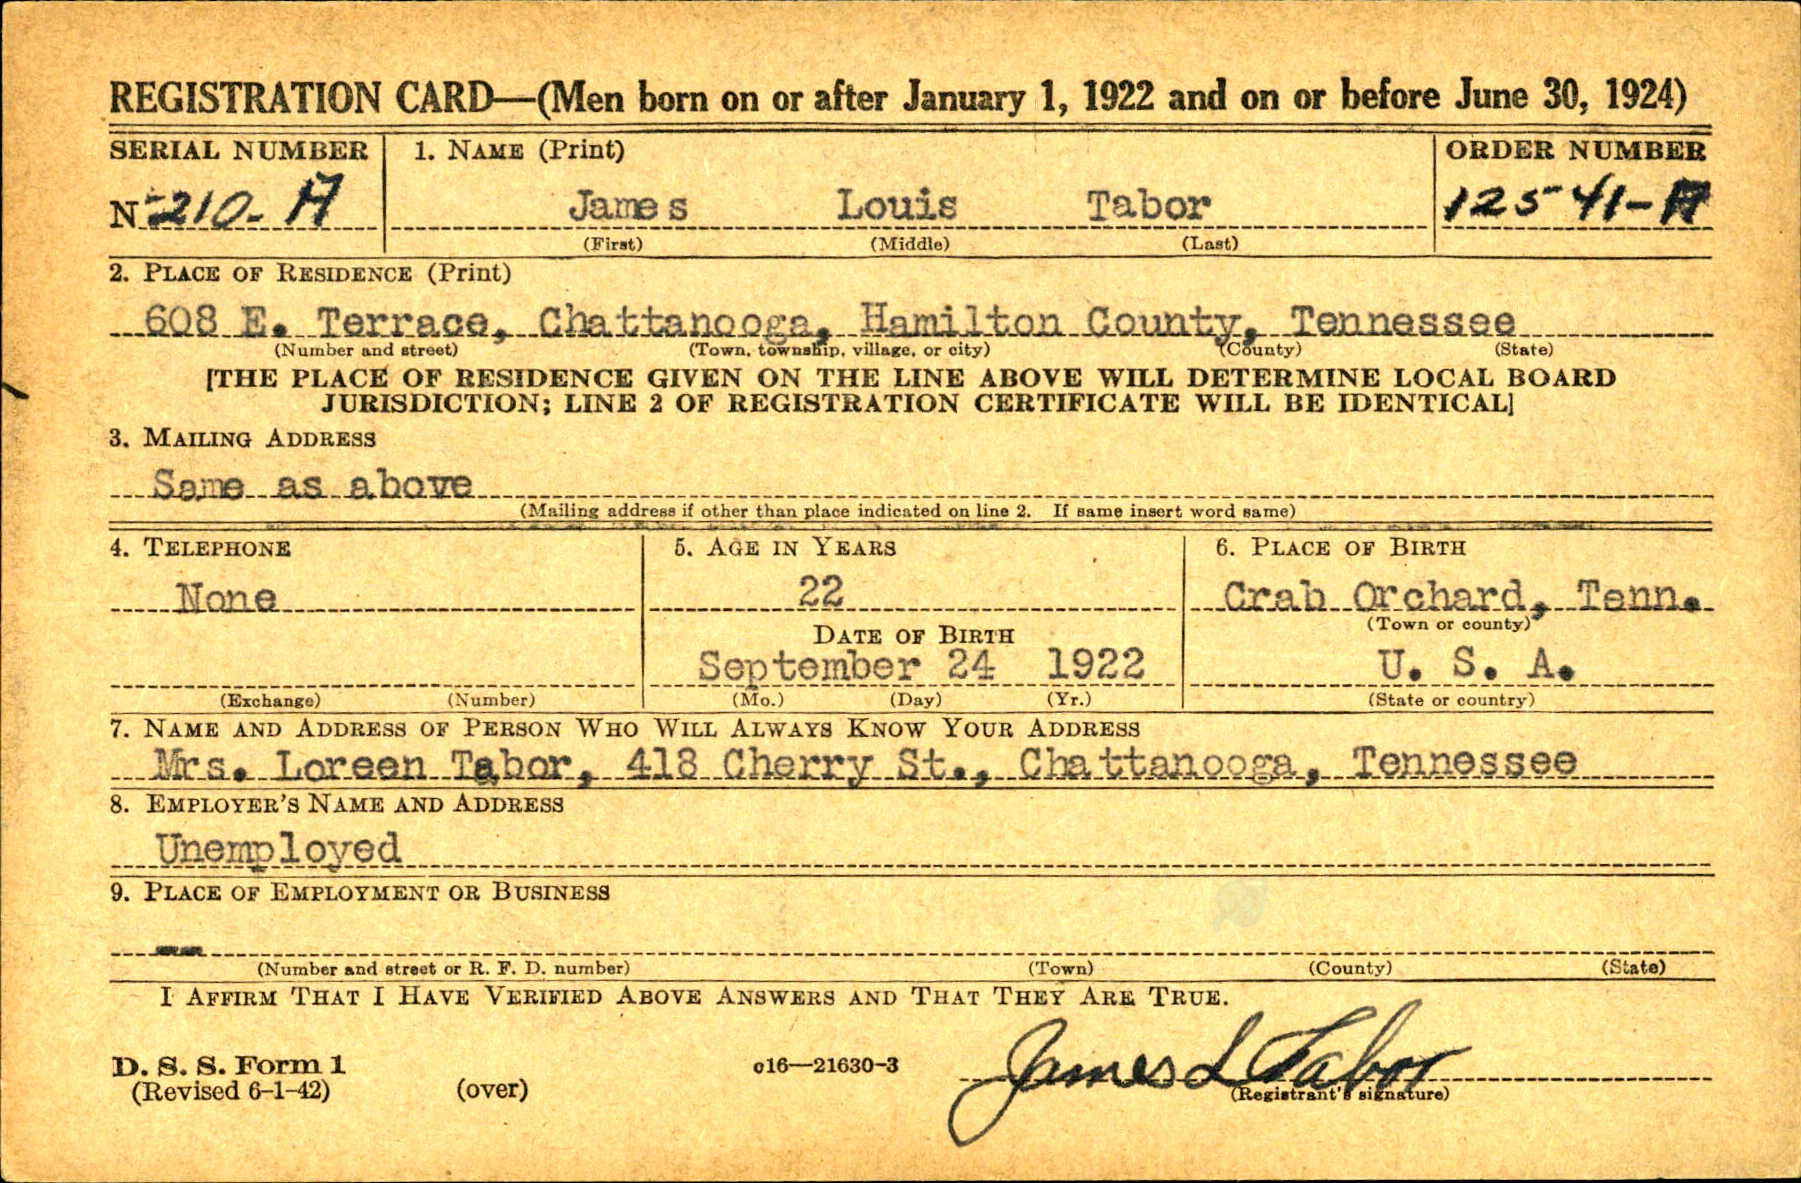 REGISTRATION CARD—(Men born on or after January 1, 1922 and on or before June 30, 1924)
SERIAL NUMBER 1. NAME (Print) ORDER NUMBER
N 210-A James Louis Tabor 12541-A
(First) (Middle) (Last)
2. PLACE OF RESIDENCE (Print)
608 E. Terrace, Chattanooga, Hamilton County, Tennessee
(Number and street) (Town, township, village, or city) (County) (State)
[THE PLACE OF RESIDENCE GIVEN ON THE LINE ABOVE WILL DETERMINE LOCAL BOARD
JURISDICTION; LINE 2 OF REGISTRATION CERTIFICATE WILL BE IDENTICAL]
3. MAILING ADDRESS
Same as above
(Mailing address if other than place indicated on line 2. If same insert word same)
4. TELEPHONE 5. AGE IN YEARS 6. PLACE OF BIRTH
None 22 Crab Orchard, Tenn.
(Town or county)
DATE OF BIRTH
September 24 1922 U. S. A.
(Exchange) (Number) (Mo.) (Day) (Yr.) (State or country)
7. NAME AND ADDRESS OF PERSON WHO WILL ALWAYS KNOW YOUR ADDRESS
Mrs. Loreen Tabor, 418 Cherry St., Chattanooga, Tennessee
8. EMPLOYER'S NAME AND ADDRESS
Unemployed
9. PLACE OF EMPLOYMENT OR BUSINESS
--
(Number and street or R. F. D. number) (Town) (County) (State)
I AFFIRM THAT I HAVE VERIFIED ABOVE ANSWERS AND THAT THEY ARE TRUE.
D. S. S. Form 1 c16—21630-3 James L Tabor
(Revised 6-1-42) (over) (Registrant's signature)